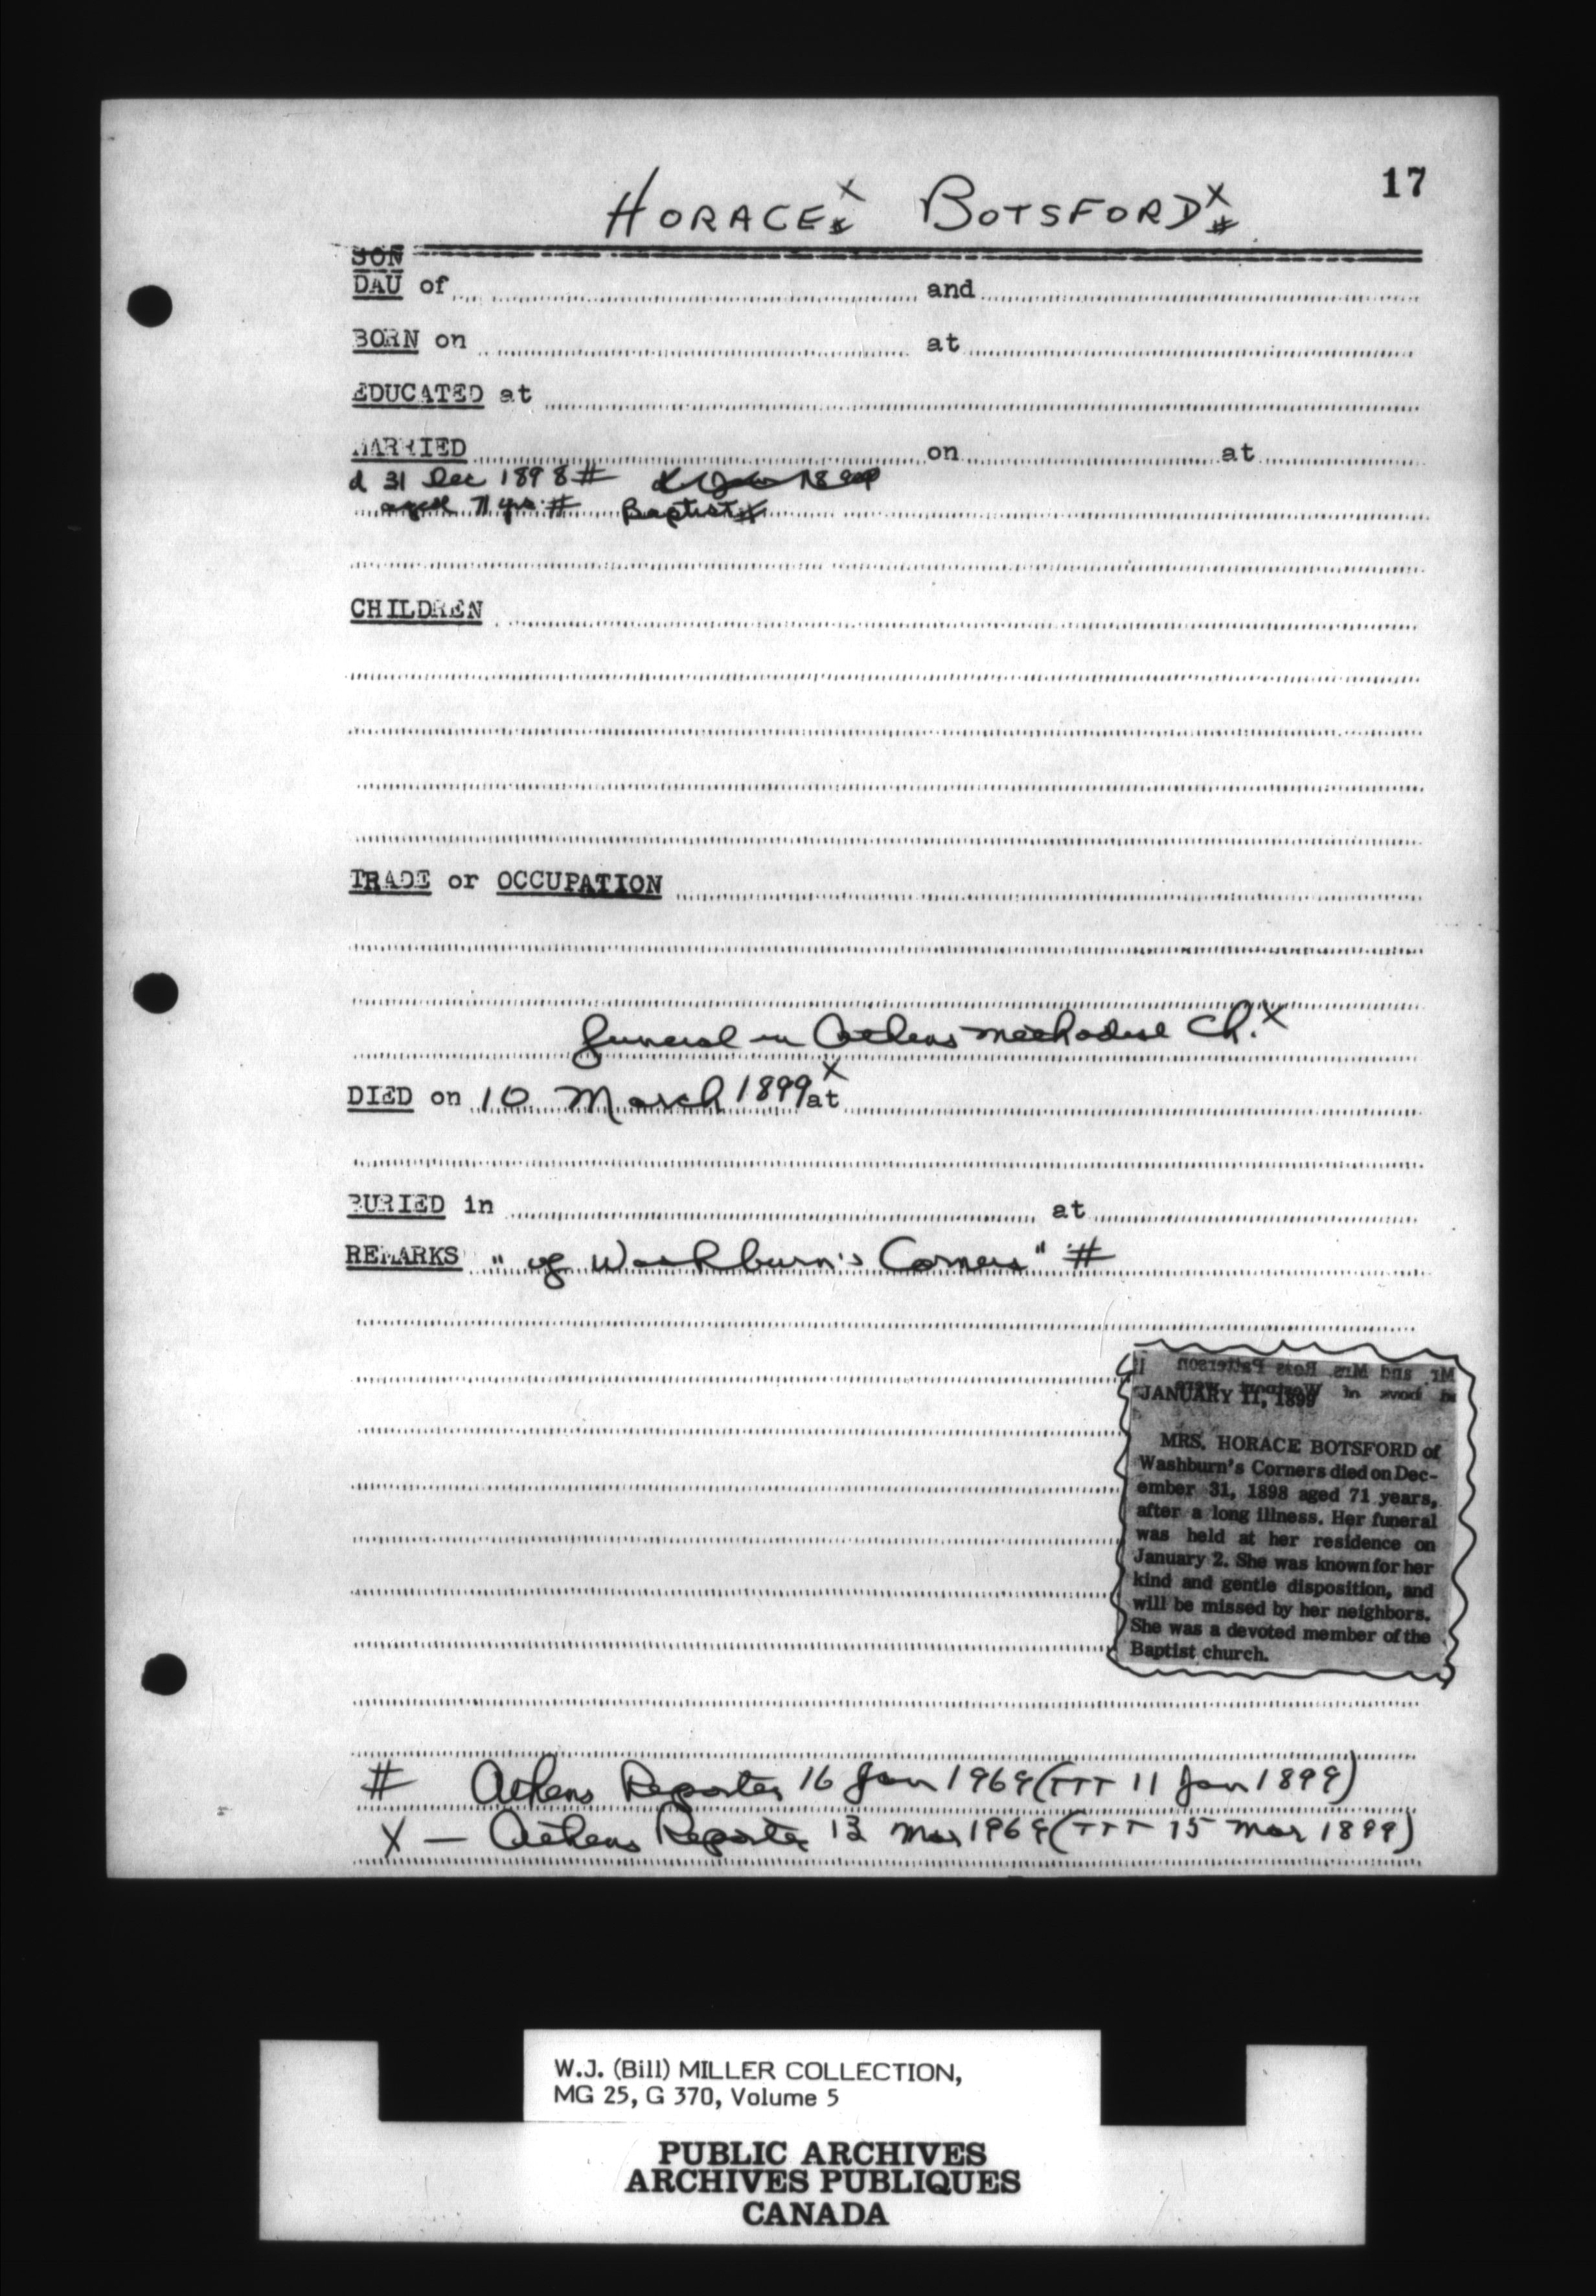 17
HORACE x # BOTSFORD x #
SON
DAU of and
BORN on at
EDUCATED at
MARRIED on at
d 31 Dec 1898 #
aged 71 yrs # Baptist #
CHILDREN
TRADE or OCCUPATION
funeral in Athens Methodist Ch. x
DIED on 10 March 1899 x at
BURIED in at
REMARKS " of Washburn's Corners " #
Mr. and Mrs. Ross Patterson
JANUARY 11, 1899
MRS. HORACE BOTSFORD of
Washburn's Corners died on Dec-
ember 31, 1898 aged 71 years,
after a long illness. Her funeral
was held at her residence on
January 2. She was known for her
kind and gentle disposition, and
will be missed by her neighbors.
She was a devoted member of the
Baptist church.
# Athens Reporter 16 Jan 1969 (TTT 11 Jan 1899)
X — Athens Reporter 13 Mar 1969 (TTT 15 Mar 1899)
W.J. (Bill) MILLER COLLECTION,
MG 25, G 370, Volume 5
PUBLIC ARCHIVES
ARCHIVES PUBLIQUES
CANADA